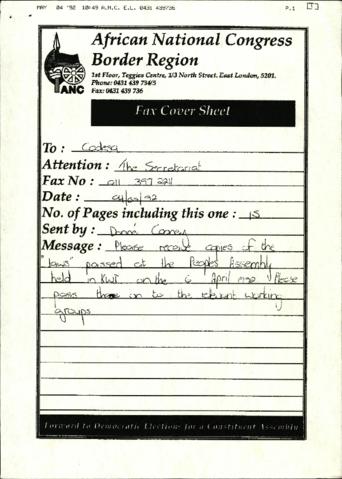 MAY 04 '92 10:49 A.N.C. E.L. 0431 439736 P.1
African National Congress
Border Region
1st Floor, Teggies Centre, 1/3 North Street. East London, 5201.
Phone: 0431 439 734/5
Fax: 0431 439 736
ANC
Fax Cover Sheet
To : Codesa
Attention : The Secretariat
Fax No : 011 397 2211
Date : 04/05/92
No. of Pages including this one : 15
Sent by :
Message : Please receive copies of the
"laws" passed at the Peoples Assembly
held in KWT on the 6 April 1992 Please
pass these on to the relevant working
groups
Forward to Democratic Elections for a Constituent Assembly